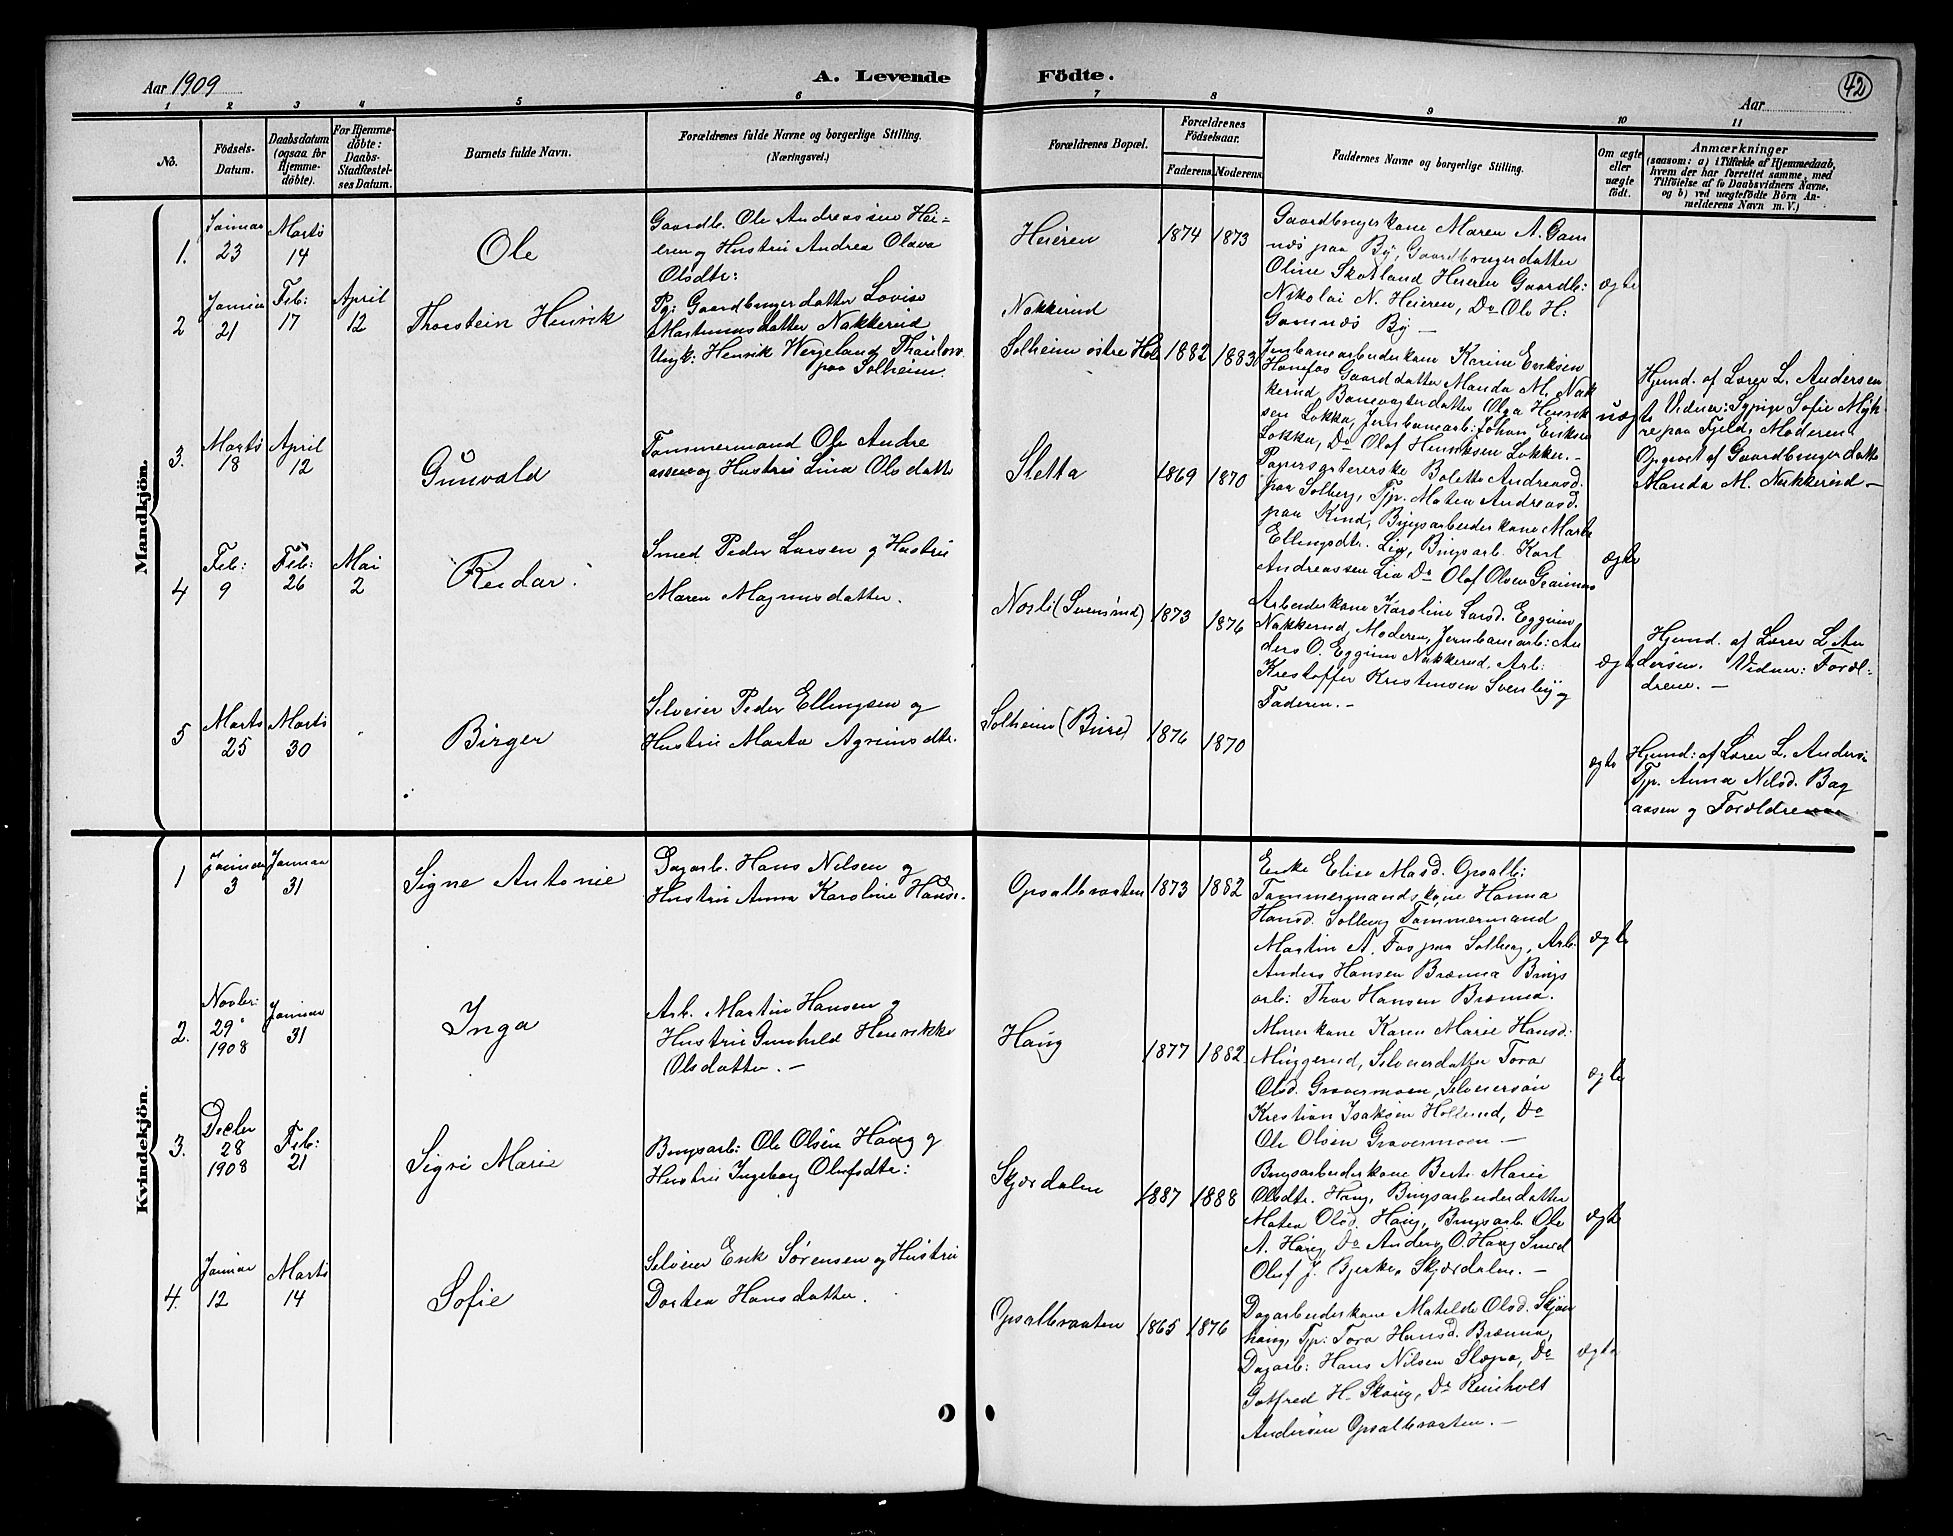 Aar 1909
A. Levende Födte.
42
Aar
1 2 3 4 5 6 7 8 9 10 11
No.
Födsels-
Datum.
Daabsdatum
(ogsaa for
Hjemme-
döbte).
For Hjemme-
döbte:
Daabs-
Stadfæstel-
ses Datum.
Barnets fulde Navn.
Forældrenes fulde Navne og borgerlige Stilling.
(Næringsvei.)
Forældrenes Bopæl.
Forældrenes
Födselsaar.
Faderens. Moderens.
Faddernes Navne og borgerlige Stilling.
Om ægte
eller
uægte
födt.
Anmærkninger
(saasom: a) i Tilfælde af Hjemmedaab,
hvem der har forrettet samme, med
Tilföielse af to Daabsvidners Navne,
og b) ved uægtefödte Börn An-
melderens Navn m. V.)
Mandkjön.
1.
Januar
23
Marts
14
Ole
Gaardb. Ole Andreassen Hei-
eren og Hustru Andrea Olava
Olsdtr:
Heieren
1874 1873
Gaardbrugerkone Maren A. Gom
næs paa By, Gaardbrugerdatter
Oline Skotland Heieren Gaardb:
Nikolai N. Heieren, Do Ole H:
Gomnæs By —
ægte
2
Januar
21
Feb:
17
April
12
Thorstein Henrik
Pg: Gaardbrugerdatter Lovise
Martinusdatter Nakkerud
Ungk: Henrik Wergeland Thaulow
paa Solheim.
Nakkerud
Solheim østre Hol
1882 1883
Jernbanearbeiderkone Karine Eriksen
Hønefos Gaarddatter Manda M. Nak
kerud, Banevogterdatter Olga Henrik
sen Løkka, Jernbanearb: Johan Eriksen
Løkka, Do Olaf Henriksen Løkken. —
uægte
Hjemd. af Lærer L. Andersen
Vidner: Sypige Sofie Myh-
re paa Fjeld, Moderen
Opgivet af Gaardbrugerdatter
Manda M. Nakkerud —
3.
Marts
18
April
12
Gunvald
Tømmermand Ole Andre
assen og Hustru Lina Olsdatte
Sletta
1869 1870
Papirsortererske Bolette Andreasd.
paa Solberg, Tjp. Maten Andreasd.
paa Kind, Brugsarbeiderkone Marte
Ellingsdtr. Lia, Brugsarb. Karl
Andreassen Lia Do Olaf Olsen
ægte
4
Feb:
9
Feb:
26
Mai
2
Reidar.
Smed Peder Larsen og Hustru
Maren Magnusdatter.
Nosli (Svensrud)
1873 1876
Arbeiderkone Karoline Larsd. Eggum
Nakkerud, Moderen, Jernbanearb: An
ders O. Eggum Nakkerud. Arb:
Krestoffer Kristensen Svenby og
Faderen. —
ægte
Hjemd. af Lærer L. An
dersen. Vidner: Foræl-
drene. —
5
Marts
25
Marts
30
Birger
Selveier Peder Ellingsen og
Hustru Marta Agrimsdtr.
Solheim (Bure)
1874 1870
ægte
Hjemd: af Lærer L. Anders:
Tjp. Anna Nilsd. Bag
aasen og Forældrene
Kvindekjön.
1
Januar
3
Januar
31
Signe Antonie
Dagarb. Hans Nilsen og
Hustru Anna Karoline Hansd.
Opsalbraaten
1873 1882
Enke Elise Masd. Opsalb:
Tømmermandskone Hanna
Hansd. Solberg Tømmermand
Martin A. Fos paa Solberg, Arb.
Anders Hansen Brænna Brugs
arb: Thor Hansen Brænna.
ægte
2.
Novbr:
29
1908
Januar
31
Inga
Arb. Martin Hansen og
Hustru Gunhild Henrikke
Olsdatter. —
Haug
1877 1882
Murerkone Karen Marie Hansd.
Muggerud, Selveierdatter Tora
Olsd. Gravermoen, Selveiersøn
Krestian Isaksen Hollerud, Do
Ole Olsen Gravermoen —
ægte
3.
Decbr
28
1908
Feb:
21
Sigri Marie
Brugsarb: Ole Olsen Haug og
Hustru Ingeborg Olafsdtr:
Skjærdalen
1887 1888
Brugsarbeiderkone Berte Marie
Olsdtr. Haug, Brugsarbeiderdatter
Maten Olsd. Haug, Brugsarb. Ole
A. Haug, Do Anders O. Haug Smed
Oluf J. Bjerke, Skjærdalen. —
ægte
4.
Januar
12
Marts
14
Sofie
Selveier Erik Sørensen og Hustru
Dortea Hansdatter.
Opsalbraaten
1865 1876
Dagarbeiderkone Matilde Olsd. Skjøn
haug, Tjp: Tora Hansd. Brænna,
Dagarb: Hans Nilsen Sløpa, Do
Gotfred H. Skaug, Do Reinholt
Andersen Opsalbraaten. —
ægte